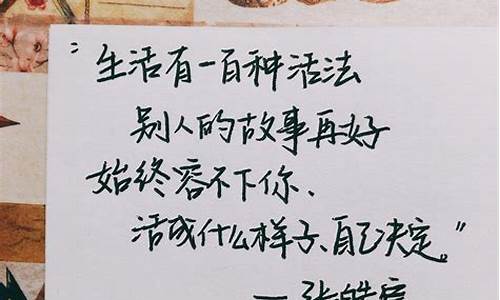 "生活有一百种活法
别人的故事再好
始终容不下你、
活成什么样子、自己决定。"
—张皓宸